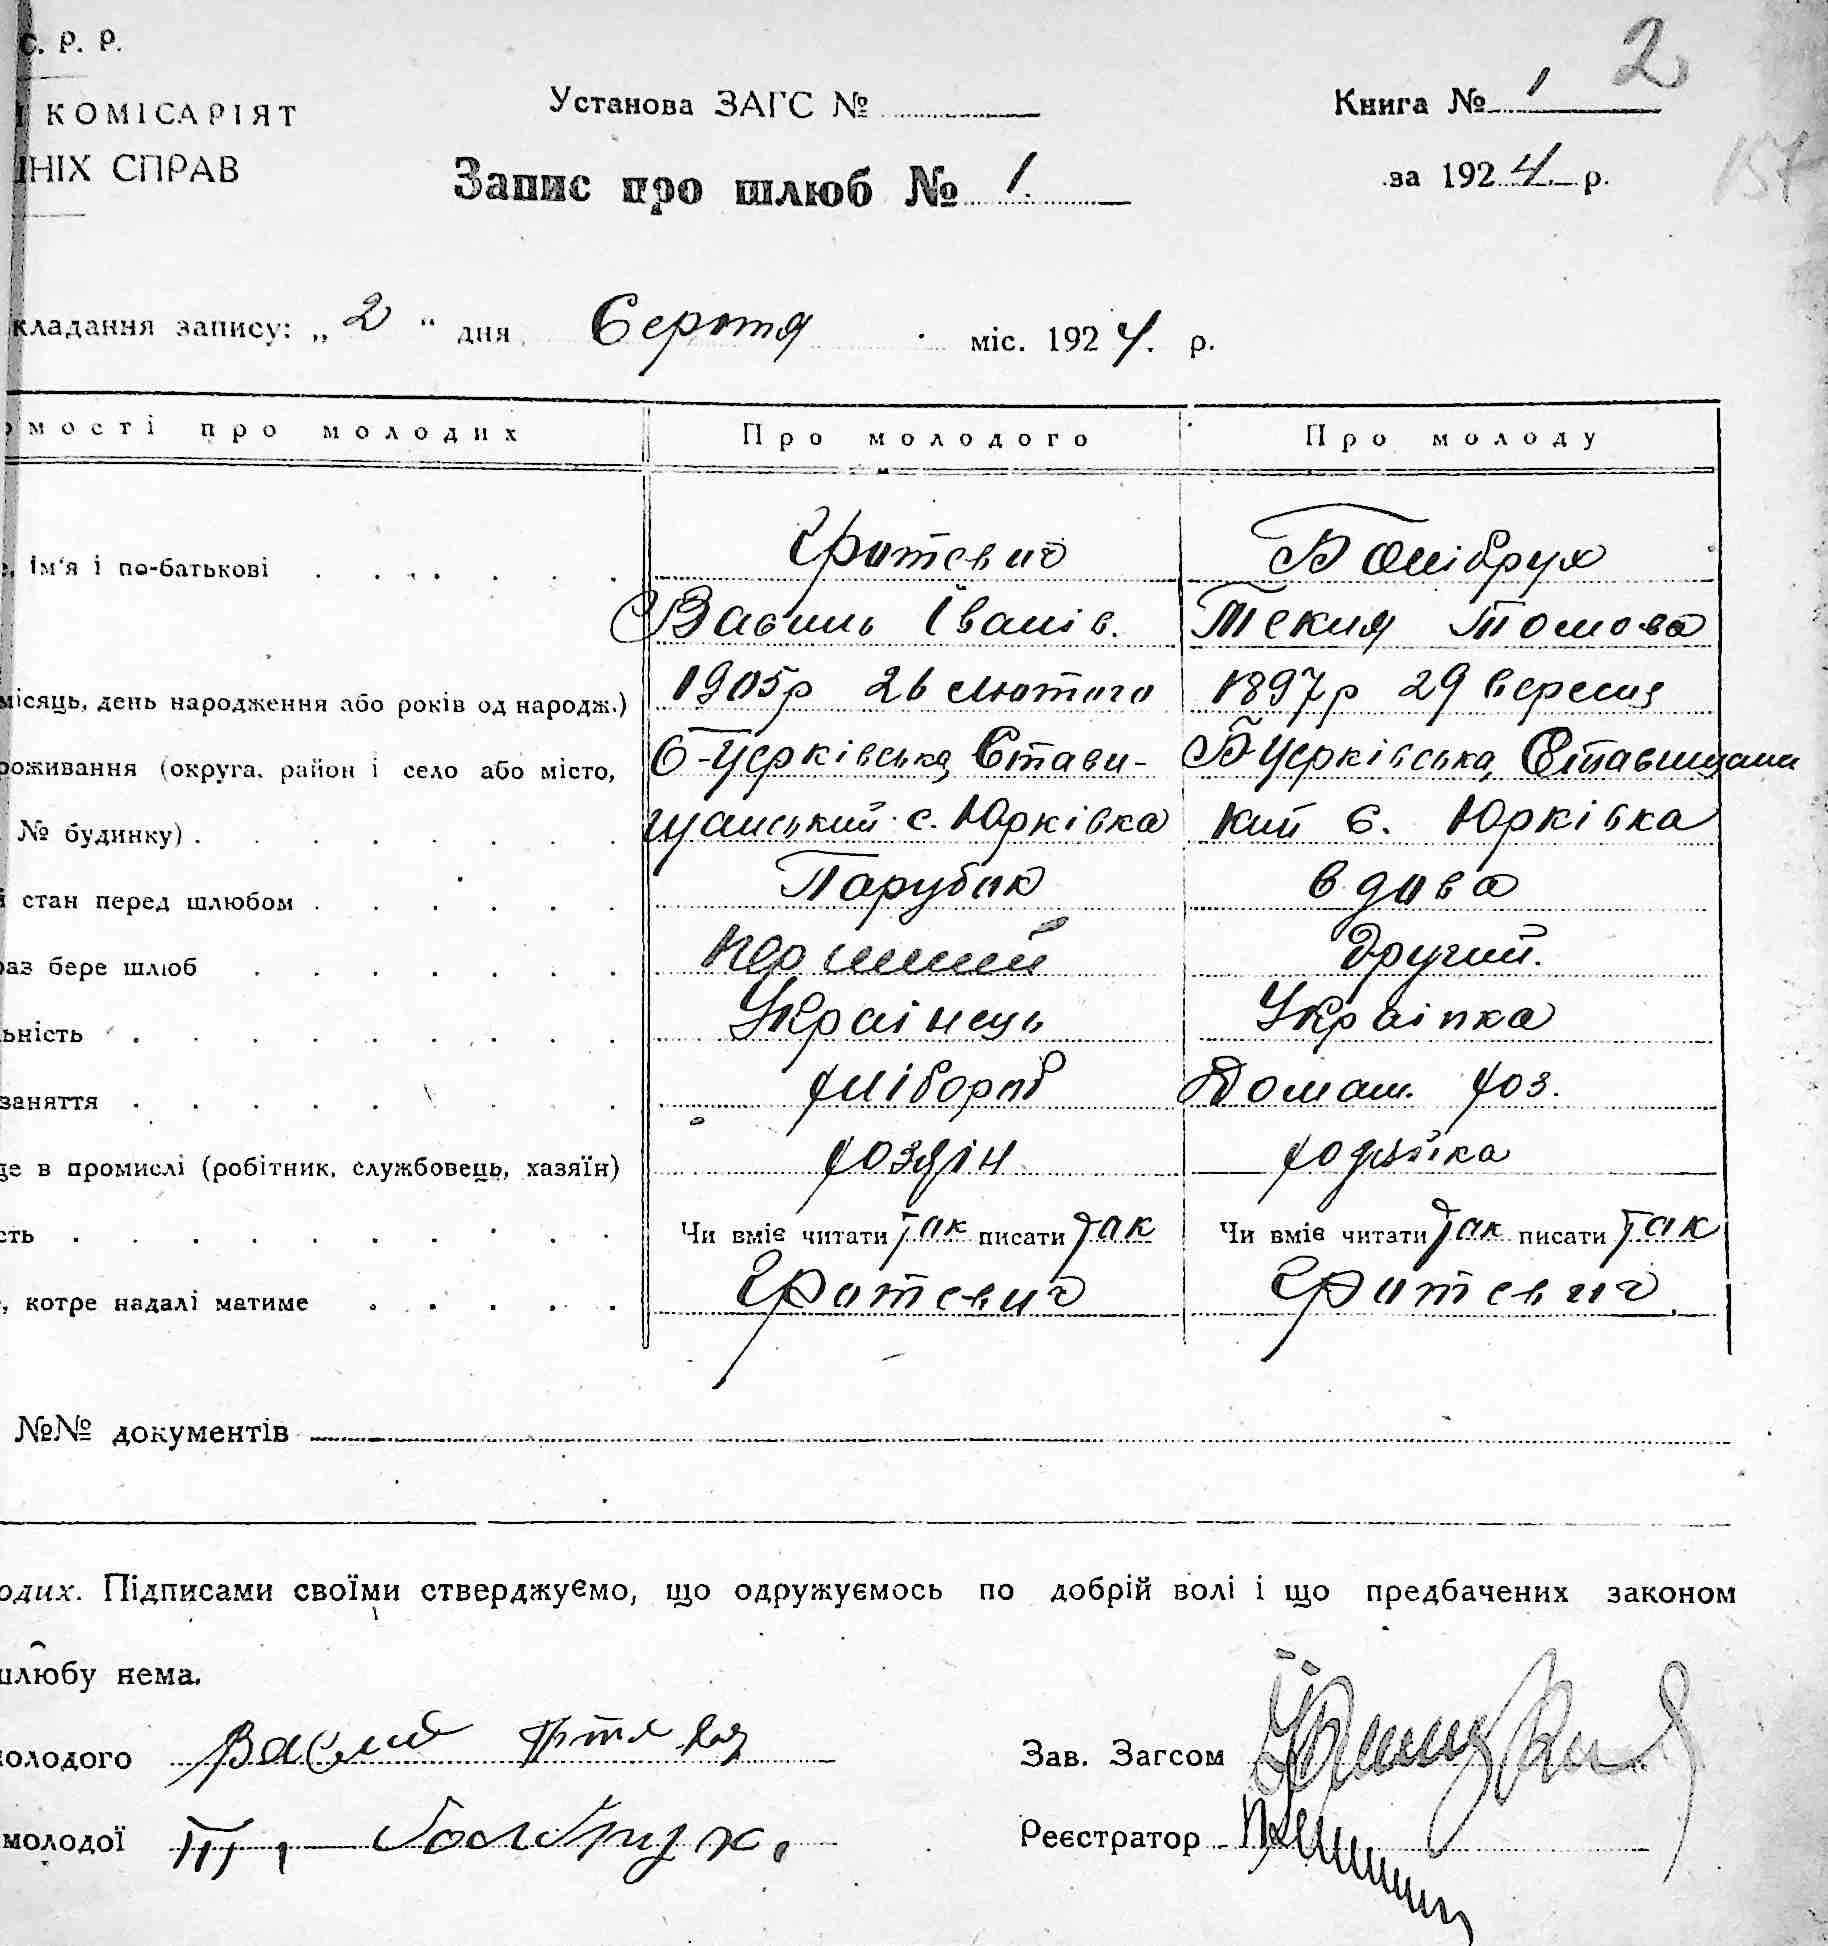 С. Р. Р.
КОМІСАРІЯТ
Установа ЗАГС №
Книга № 1
2
НІХ СПРАВ
Запис про шлюб № 1.
за 1924 р.
157
кладання запису: „2“ дня Серпня міс. 1924. р.
мості про молодих
Про молодого
Про молоду
, ім'я і по-батькові
Гратевич
Василь Іванів.
Болібрух
Текля Томова
місяць, день народження або років од народж.)
1905р 26 лютого
1897р 29 вересня
роживання (округа, район і село або місто,
№ будинку)
Б-Церківська, Стави-
щанський с. Юрківка
Б Церківська, Ставищанс
кий с. Юрківка
стан перед шлюбом
Парубок
вдова
раз бере шлюб
перший
другий.
ьність
Украінець
Украінка
заняття
хлібороб
Домаш. хоз.
це в промислі (робітник, службовець, хазяїн)
хозяін
хозяйка
сть
Чи вміє читати так писати так
Чи вміє читати так писати так
, котре надалі матиме
Гратевич
Гратевич.
№№ документів
одих. Підписами своїми стверджуємо, що одружуємось по добрій волі і що предбачених законом
шлюбу нема.
молодого
Зав. Загсом
молодої
Реєстратор